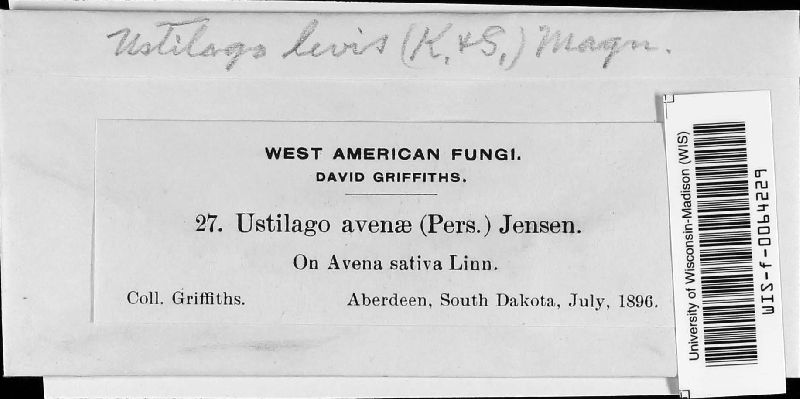 Ustilago levis (K. & S.) Magn.
WEST AMERICAN FUNGI.
DAVID GRIFFITHS.
27. Ustilago avenæ (Pers.) Jensen.
On Avena sativa Linn.
Coll. Griffiths. Aberdeen, South Dakota, July, 1896.
University of Wisconsin-Madison (WIS)
WIS-f-0064229